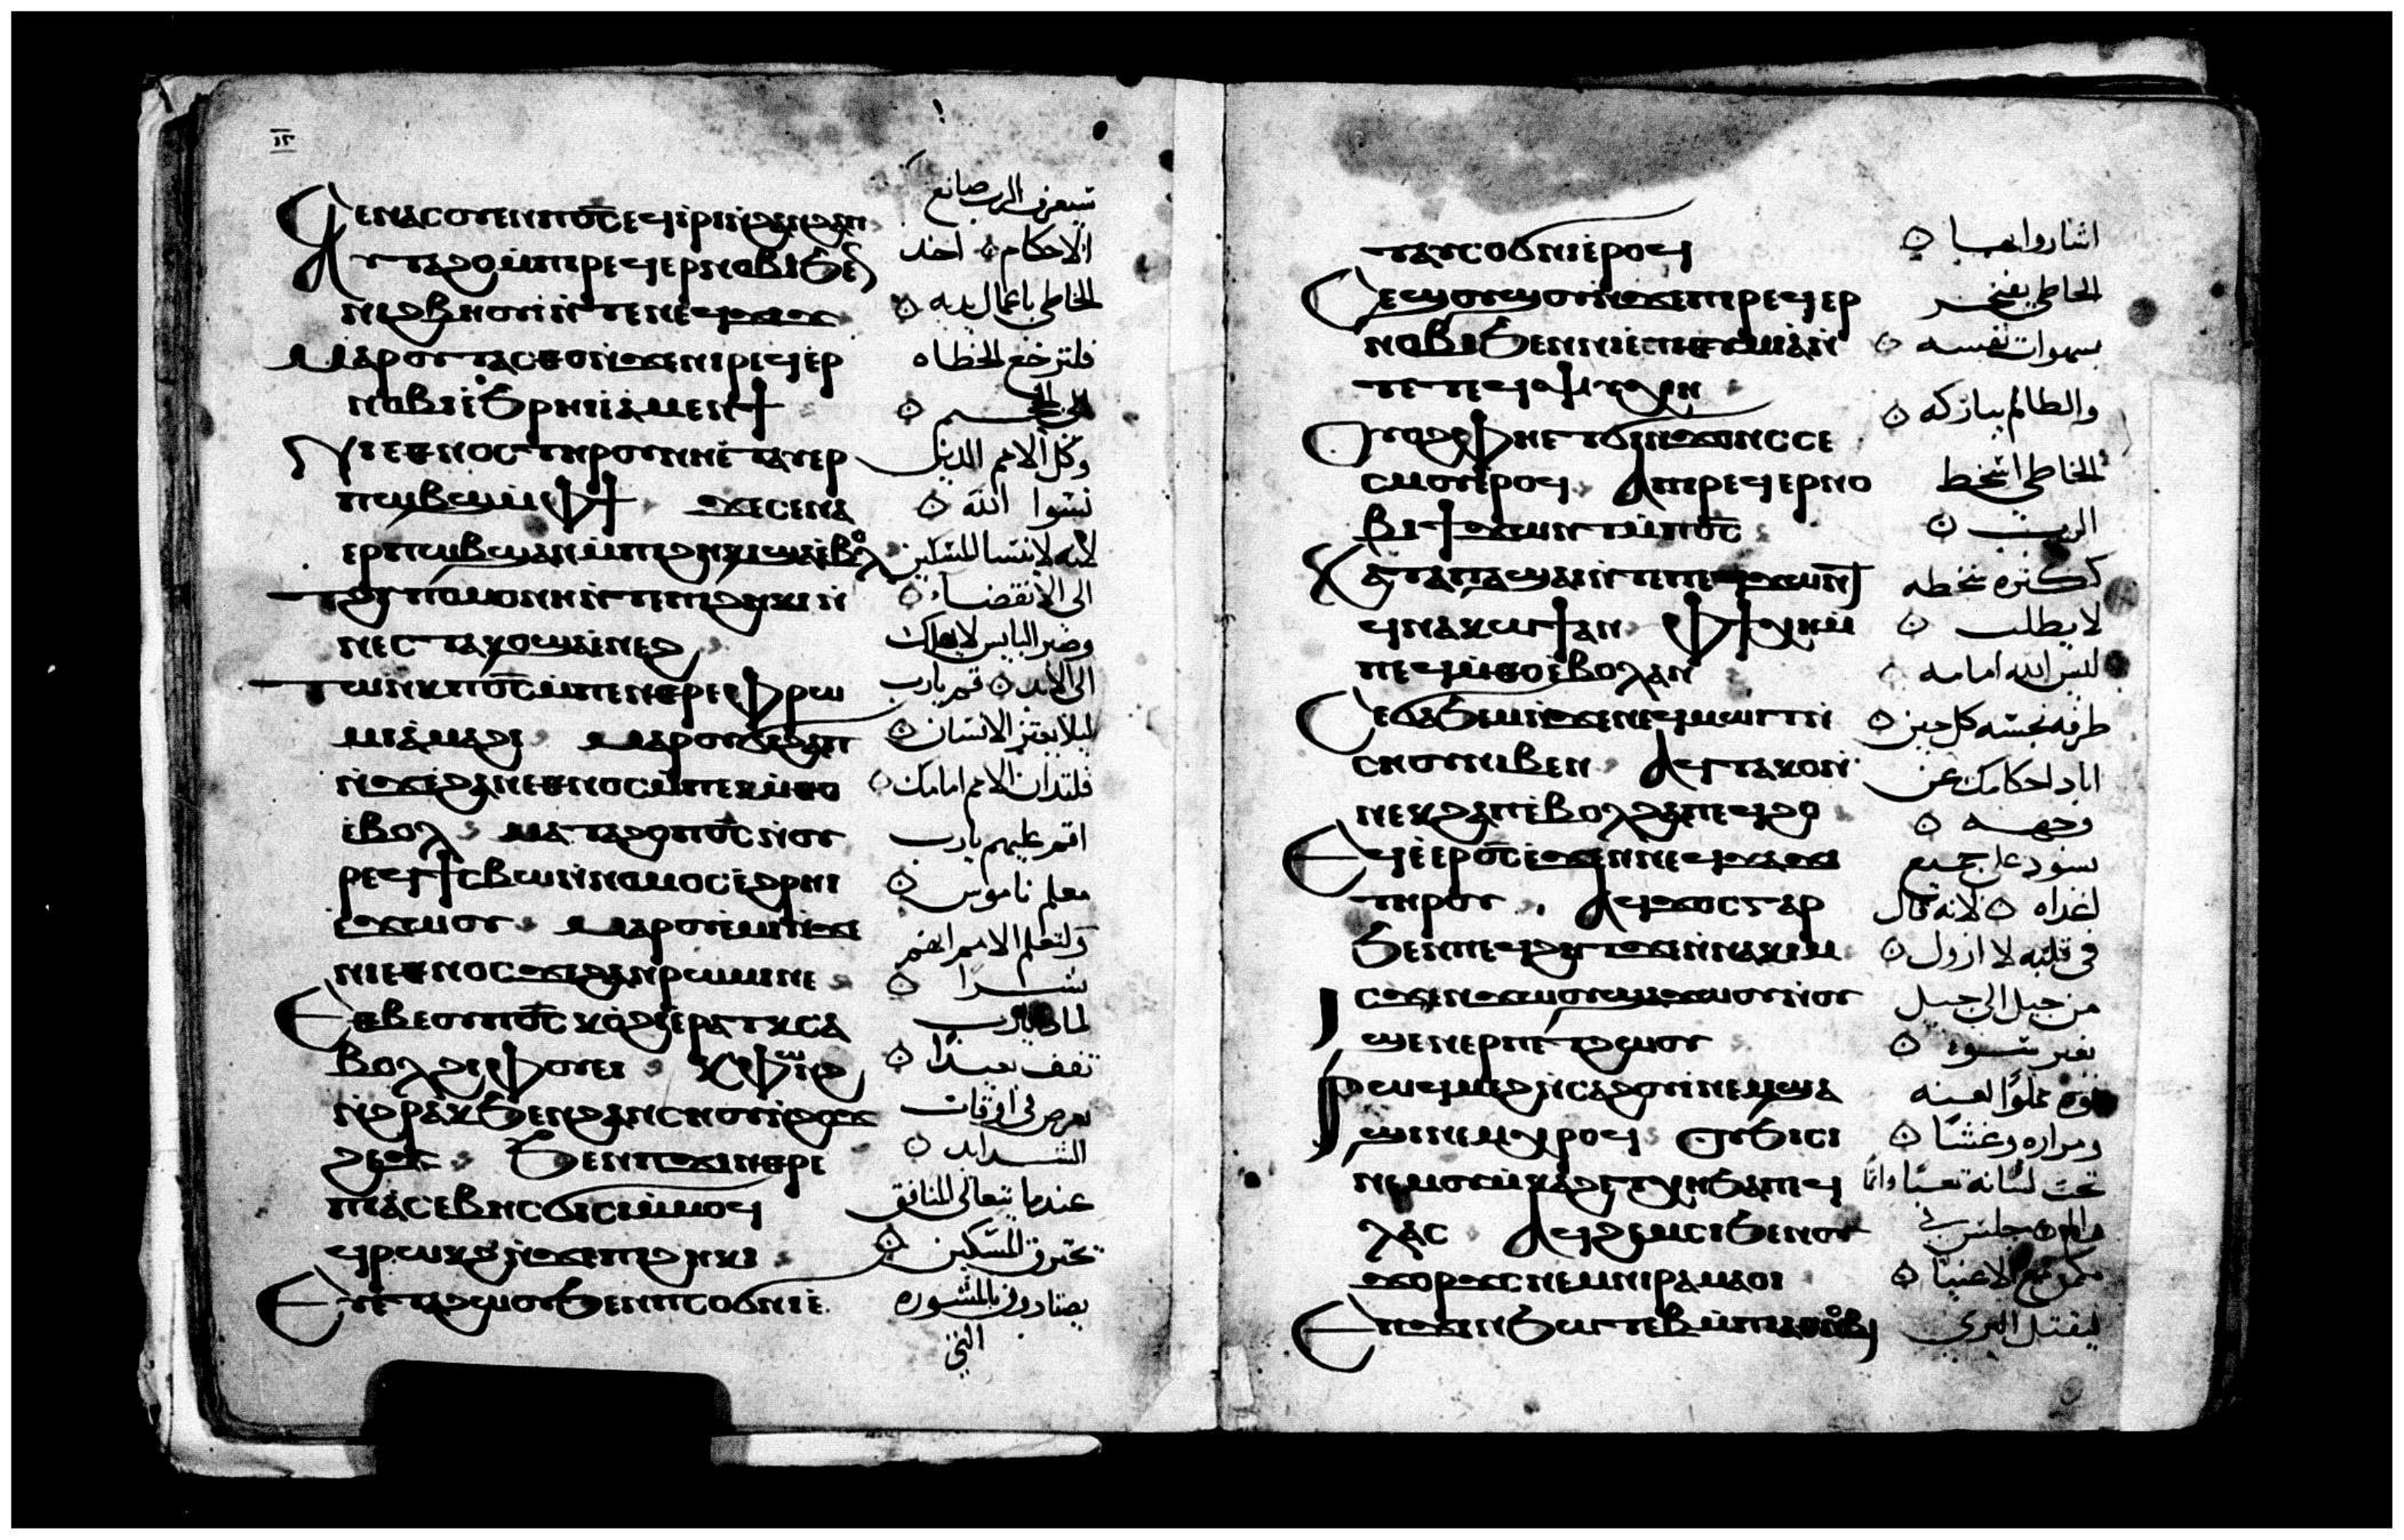 ϥⲉⲛⲁⲥⲟⲩⲉⲛ ⲡϭ̅ⲥ̅ ⲉϥⲓⲣⲓ ⲛ̀ϩⲁⲛϩⲁⲡ
ⲁⲩⲧⲁϩⲟ ⲙ̀ⲡⲓⲣⲉϥⲉⲣⲛⲟⲃⲓ ϧⲉⲛ
ⲛⲓϩⲃⲏⲟⲩⲓ̀ ⲛ̀ⲧⲉ ⲛⲉϥϫⲓϫ
ⲙⲁⲣⲟⲩⲧⲁⲥⲑⲟ ⲛ̀ϫⲉ ⲛⲓⲣⲉϥⲉⲣ
ⲛⲟⲃⲓ ⲉ̀ϧⲣⲏⲓ ⲉ̀ⲁⲙⲉⲛϯ
ⲛⲓⲉⲑⲛⲟⲥ ⲧⲏⲣⲟⲩ ⲛⲏⲉ̀ⲧⲁⲩⲉⲣ
ⲡⲱⲃϣ ⲙ̀ⲫϯ ϫⲉ ⲥⲉⲛⲁ
ⲉⲣⲡⲱⲃϣ ⲁⲛ ⲙ̀ⲡⲓϩⲏⲕⲓ ϣⲁⲉ̀ⲃⲟⲗ
ϯϩⲩⲡⲟⲙⲟⲛⲏ ⲛ̀ⲧⲉ ⲡⲓϩⲏⲕⲓ ⲛ̀
ⲛⲉⲥⲧⲁⲕⲟ ϣⲁⲉ̀ⲛⲉϩ
ⲧⲱⲛⲕ ⲡϭ̅ⲥ̅ ⲙ̀ⲡⲉⲛⲑⲣⲉ ⲫⲣⲱ
ⲙⲓ ⲁ̀ⲙⲁϩⲓ ⲙⲁⲣⲟⲩϭⲓϩⲁⲡ
ⲛ̀ϫⲉ ϩⲁⲛⲉⲑⲛⲟⲥ ⲙ̀ⲡⲉⲕⲙ̀ⲑⲟ
ⲉ̀ⲃⲟⲗ ⲙⲁⲧⲁϩⲟ ⲡϭ̅ⲥ̅ ⲛ̀ⲟⲩ
ⲣⲉϥϯⲥⲃⲱ ⲛ̀ⲛⲟⲙⲟⲥ ⲉ̀ϩⲣⲏⲓ
ⲉ̀ϫⲱⲟⲩ ⲙⲁⲣⲟⲩⲉ̀ⲙⲓ ⲛ̀ϫⲉ
ⲛⲓⲉⲑⲛⲟⲥ ϫⲉ ϩⲁⲛⲣⲱⲙⲓ ⲛⲉ
ⲉⲑⲃⲉⲟⲩ ⲡϭ̅ⲥ̅ ⲕⲟ̀ϩⲓ ⲉ̀ⲣⲁⲧⲕ ⲥⲁ
ⲃⲟⲗ ϩⲓⲫⲟⲩⲉⲓ ⲕϥⲱⲛϩ
ⲛ̀ϩⲣⲁⲕ ϧⲉⲛ ϩⲁⲛⲥⲏⲟⲩ ⲛ̀ϩⲟϫ
ϩⲉϫ ϧⲉⲛ ⲡϫⲓⲛⲑⲣⲉ
ⲡⲓⲁⲥⲉⲃⲏⲥ ϭⲓⲥⲓ ⲙ̀ⲙⲟϥ
ϥⲣⲱⲕϩ ⲛ̀ϫⲉ ⲡⲓϩⲏⲕⲓ
ⲉⲩⲉ̀ⲧⲁϩⲱⲟⲩ ϧⲉⲛ ⲡⲥⲟϭⲛⲓ ⲉ̀
ستعرف الرب صانع
الاحكام اخد
الخاطى باعمال يديه
فلترجع الخطاه
الى الجحيم
وكل الامم الدين
نسوا الله
لانه لا ينسا المسكين
الى الانقضاء
وصبر البايس لا يهلك
الى الابد قم يارب
ليلا يعتز الانسان
فلتدان الامم امامك
اقم عليهم يارب
معلم ناموس
ولتعلم الامم انهم
بشرا
لمادا يارب
تقف بعيدا
تعرض فى اوقات
الشدايد
عندما يتعالى المنافق
يحترق المسكين
يصتادون بالمشوره
التى
ⲧⲁⲩⲥⲟϭⲛⲓ ⲉ̀ⲣⲟϥ
ⲥⲉϣⲟⲩϣⲟⲩ ⲛ̀ϫⲉ ⲡⲓⲣⲉϥⲉⲣ
ⲛⲟⲃⲓ ϧⲉⲛ ⲛⲓⲉ̀ⲡⲓⲑⲩⲙⲓⲁ ⲛ̀
ⲧⲉ ⲧⲉϥⲯⲩⲭⲏ
ⲟⲩⲟϩ ⲫⲏⲉⲧϭⲓⲛϫⲟⲛⲥ ⲥⲉ
ⲥⲙⲟⲩ ⲉ̀ⲣⲟϥ ⲁⲡⲓⲣⲉϥⲉⲣⲛⲟ
ⲃⲓ ϯϫⲱⲛⲧ ⲙ̀ⲡϭ̅ⲥ̅
ⲕⲁⲧⲁ ⲡⲁ̀ϣⲁⲓ ⲛ̀ⲧⲉ ⲡⲉϥϫⲱⲛⲧ
ϥⲛⲁⲕⲱϯ ⲁⲛ ⲫϯ ⲭⲏ ⲙ̀
ⲡⲉϥⲙ̀ⲑⲟ ⲉ̀ⲃⲟⲗ ⲁⲛ
ⲥⲉϭⲁϧⲉⲙ ⲛ̀ϫⲉ ⲛⲉϥⲙⲱⲓⲧ ⲛ̀
ⲥⲏⲟⲩ ⲛⲓⲃⲉⲛ ⲁⲩⲧⲁⲕⲟ ⲛ̀
ⲛⲉⲕϩⲁⲡ ⲉ̀ⲃⲟⲗ ϩⲁ ⲡⲉϥϩⲟ
ⲉϥⲉ̀ⲉⲣϭ̅ⲥ̅ ⲉ̀ϫⲉⲛ ⲛⲉϥϫⲁϫⲓ
ⲧⲏⲣⲟⲩ ⲁϥϫⲟⲥ ⲅⲁⲣ
ϧⲉⲛ ⲡⲉϥϩⲏⲧ ϫⲉ ⲛ̀ⲛⲁⲕⲓⲙ
ⲓⲥϫⲉⲛ ϫⲱⲟⲩ ϣⲁ ϫⲱⲟⲩ ⲛ̀ⲟⲩ
ⲉϣⲉⲛ ⲉⲣⲡⲉⲧϩⲱⲟⲩ
ⲣⲱϥ ⲙⲉϩ ⲛ̀ⲥⲁϩⲟⲩⲓ̀ ⲛⲉⲙ ϣⲁ
ϣⲓ ⲛⲉⲙ ⲭⲣⲟϥ ⲟⲩϧⲓⲥⲓ
ⲛⲉⲙ ⲟⲩⲙ̀ⲕⲁϩ ⲉⲧⲭⲏ ϧⲁ ⲡⲉϥ
ⲗⲁⲥ ⲁϥϩⲉⲙⲥⲓ ϧⲉⲛ ⲟⲩ
ϫⲟⲣϫⲥ ⲛⲉⲙ ⲛⲓⲣⲁⲙⲁⲟⲓ
ⲉⲡϫⲓⲛϧⲱⲧⲉⲃ ⲙ̀ⲡⲓⲁⲑⲛⲟⲃⲓ
اشاروا بها
الخاطى يفتخر
بسهوات نفسه
والظالم يباركه
الخاطى اسخط
الرب
ككثره سخطه
لا يطلب
ليس الله امامه
طرقه نجسه كل حين
اباد احكامك عن
وجهه
يسود على جميع
اعداه لانه قال
فى قلبه لا ازول
من جيل الى جيل
بغير سوء
فوه مملوا لعنه
ومراره وغشا
تحت لسانه تعبا واثما
جلس فى
مكمن مع الاغنيا
ليقتل البرى